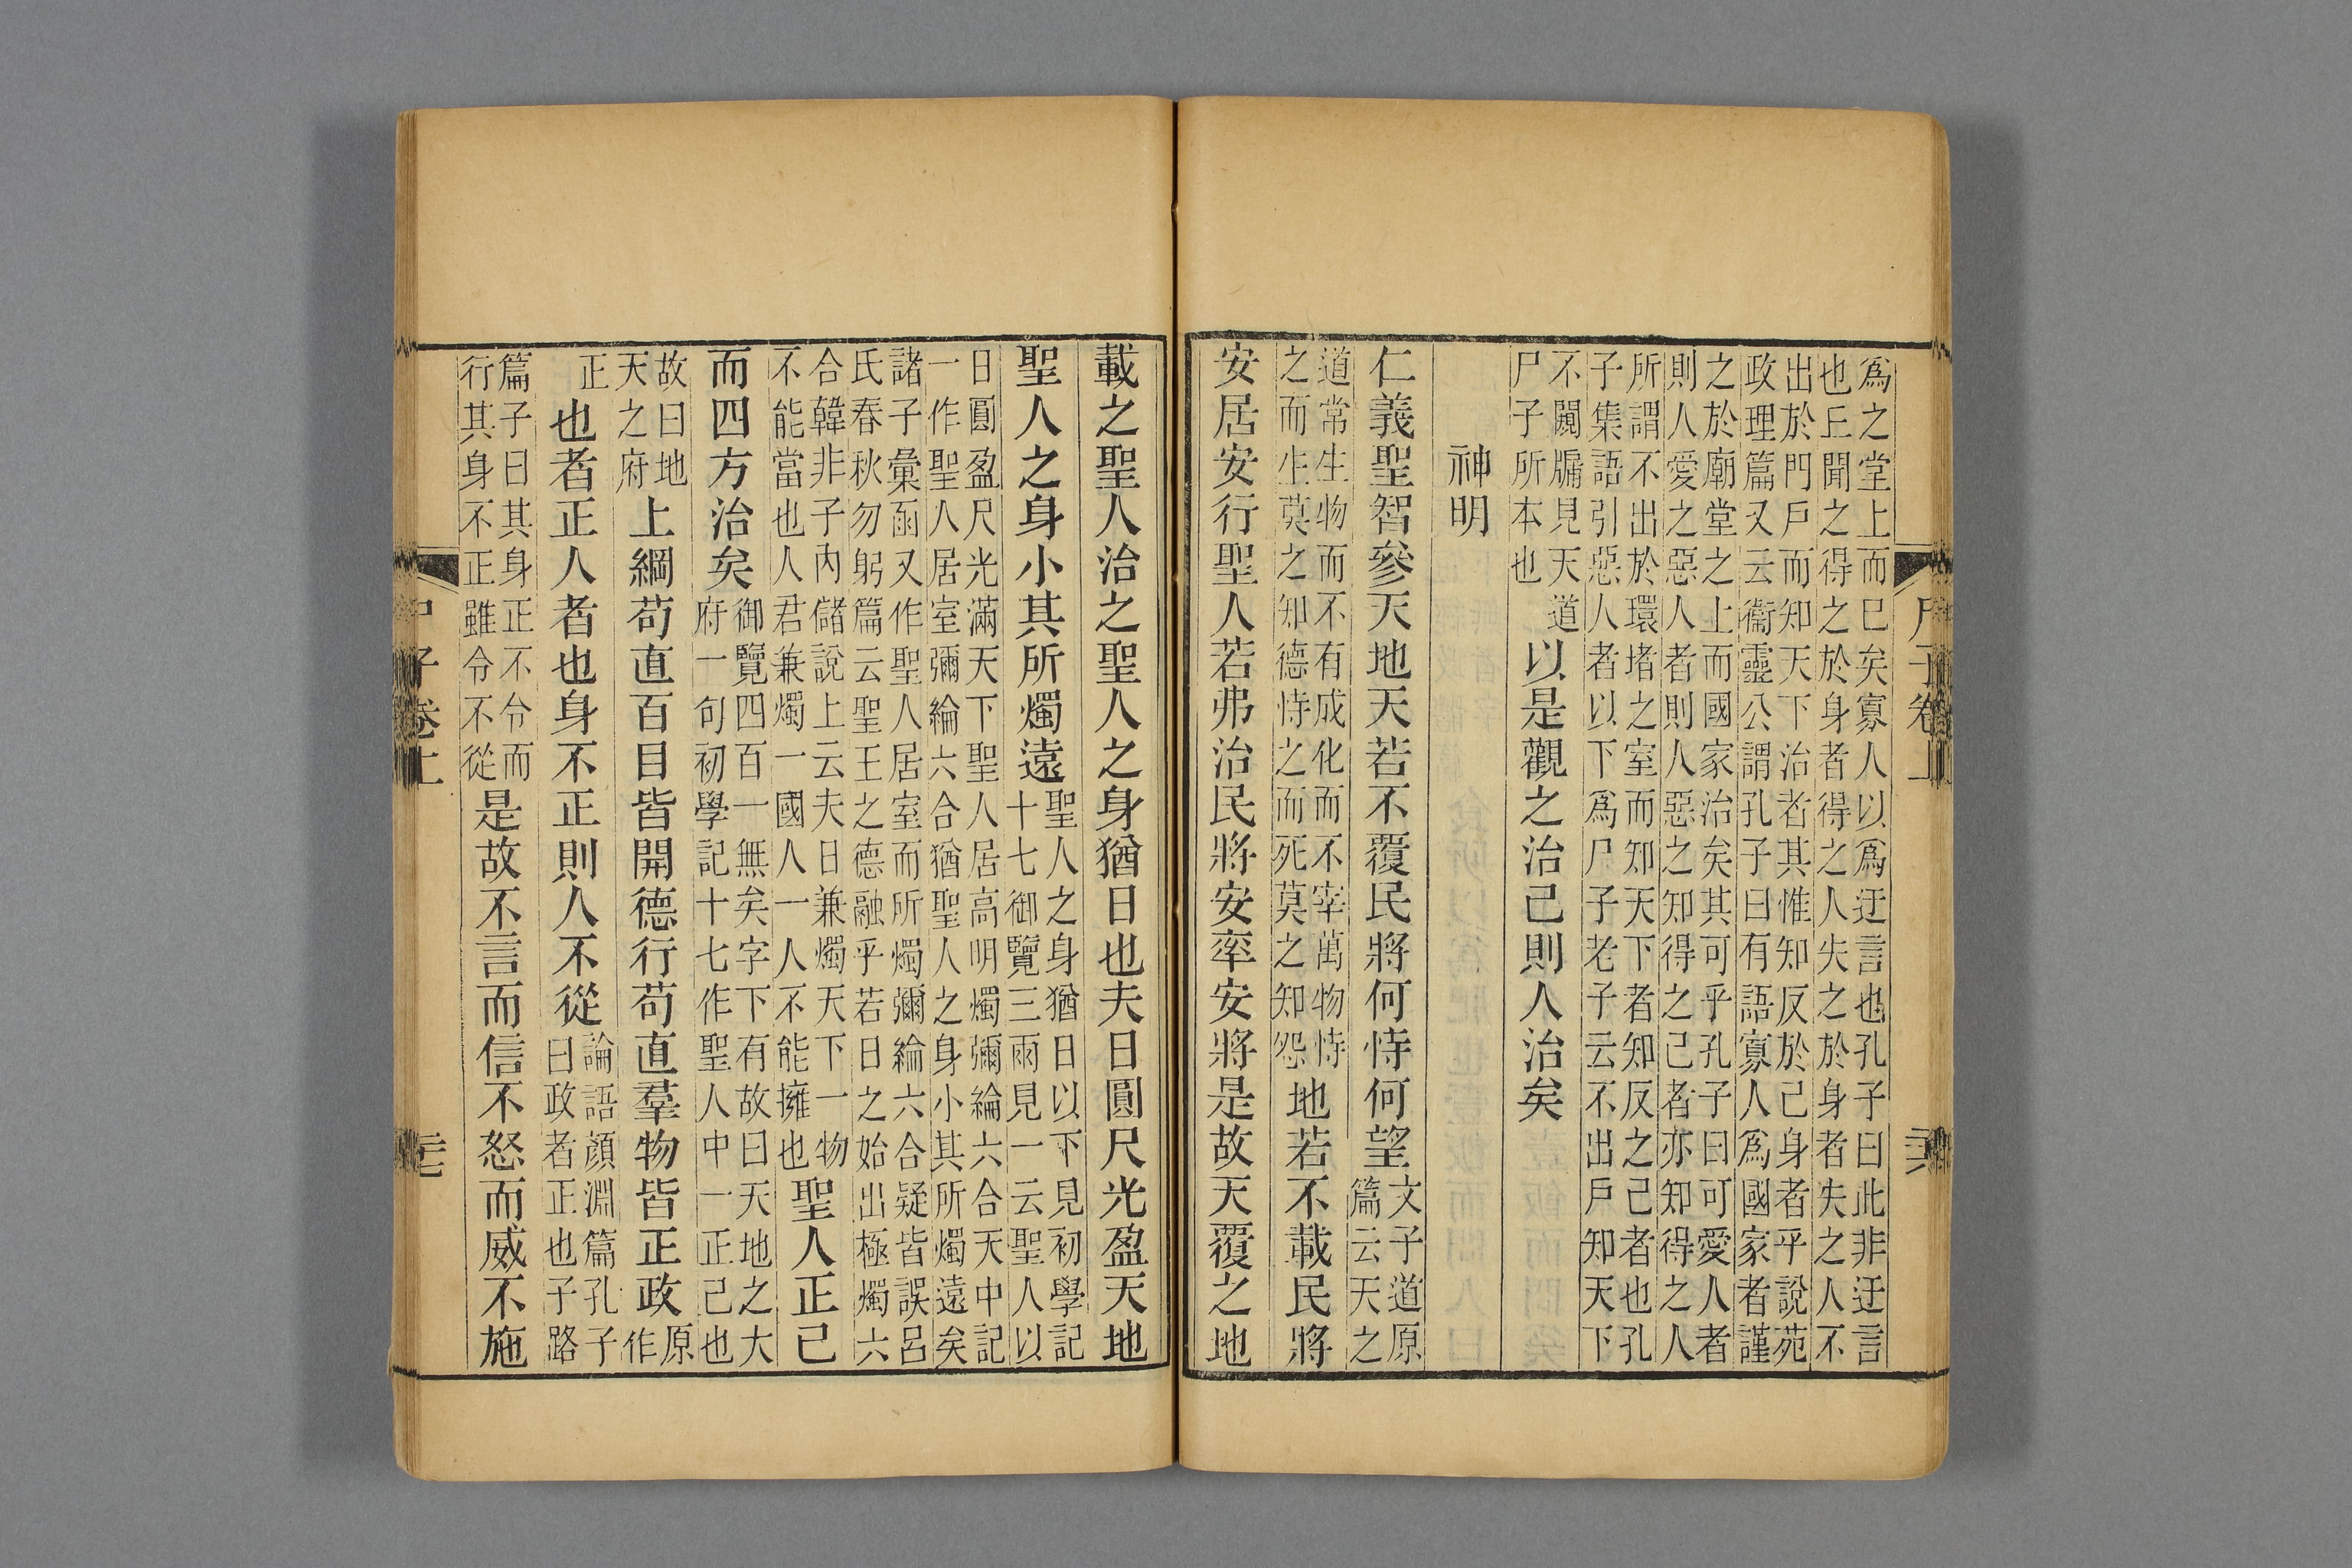 尸子卷上
爲之堂上而巳矣寡人以爲迂言也孔子曰此非迂言
也丘聞之得之於身者得之人失之於身者失之人不
出於門戶而知天下治者其惟知反於己身者乎說苑
政理篇又云衞靈公謂孔子曰有語寡人爲國家者謹
之於廟堂之上而國家治矣其可乎孔子曰可愛人者
則人愛之惡人者則人惡之知得之己者亦知得之人
所謂不出於環堵之室而知天下者知反之己者也孔
子集語引惡人者以下爲尸子老子云不出戶知天下
不闚牖見天道
尸子所本也
以是觀之治己則人治矣
神明
仁義聖智參天地天若不覆民將何恃何望
文子道原
篇云天之
道常生物而不有成化而不宰萬物恃
之而生莫之知德恃之而死莫之知怨
地若不載民將
安居安行聖人若弗治民將安率安將是故天覆之地
載之聖人治之聖人之身猶日也夫日圓尺光盈天地
聖人之身小其所燭遠
聖人之身猶日以下見初學記
十七御覽三雨見一云聖人以
日圓盈尺光滿天下聖人居高明燭彌綸六合天中記
一作聖人居室彌綸六合猶聖人之身小其所燭遠矣
諸子彙函又作聖人居室而所燭彌綸六合疑皆誤呂
氏春秋勿躬篇云聖王之德融乎若日之始出極燭六
合韓非子內儲說上云夫日兼燭天下一物
不能當也人君兼燭一國人一人不能擁也
聖人正己
而四方治矣
御覽四百一無矣字下有故曰天地之大
府一句初學記十七作聖人中一正己也
故曰地
天之府
上綱苟直百目皆開德行苟直羣物皆正政
原
作
正
也者正人者也身不正則人不從
論語顏淵篇孔子
曰政者正也子路
篇子曰其身正不令而
行其身不正雖令不從
是故不言而信不怒而威不施
子卷上